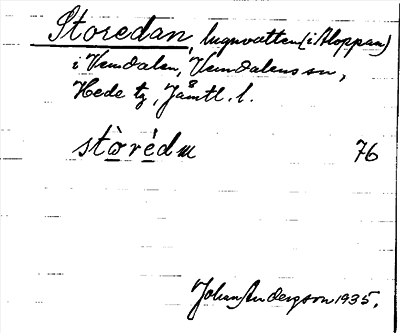 Storedan, lugnvatten (i Aloppan)
i Vemdalen, Vemdalens sn,
Hede tg, Jämtl. l.
stòrédɯ 76
Johan Anderson 1935.